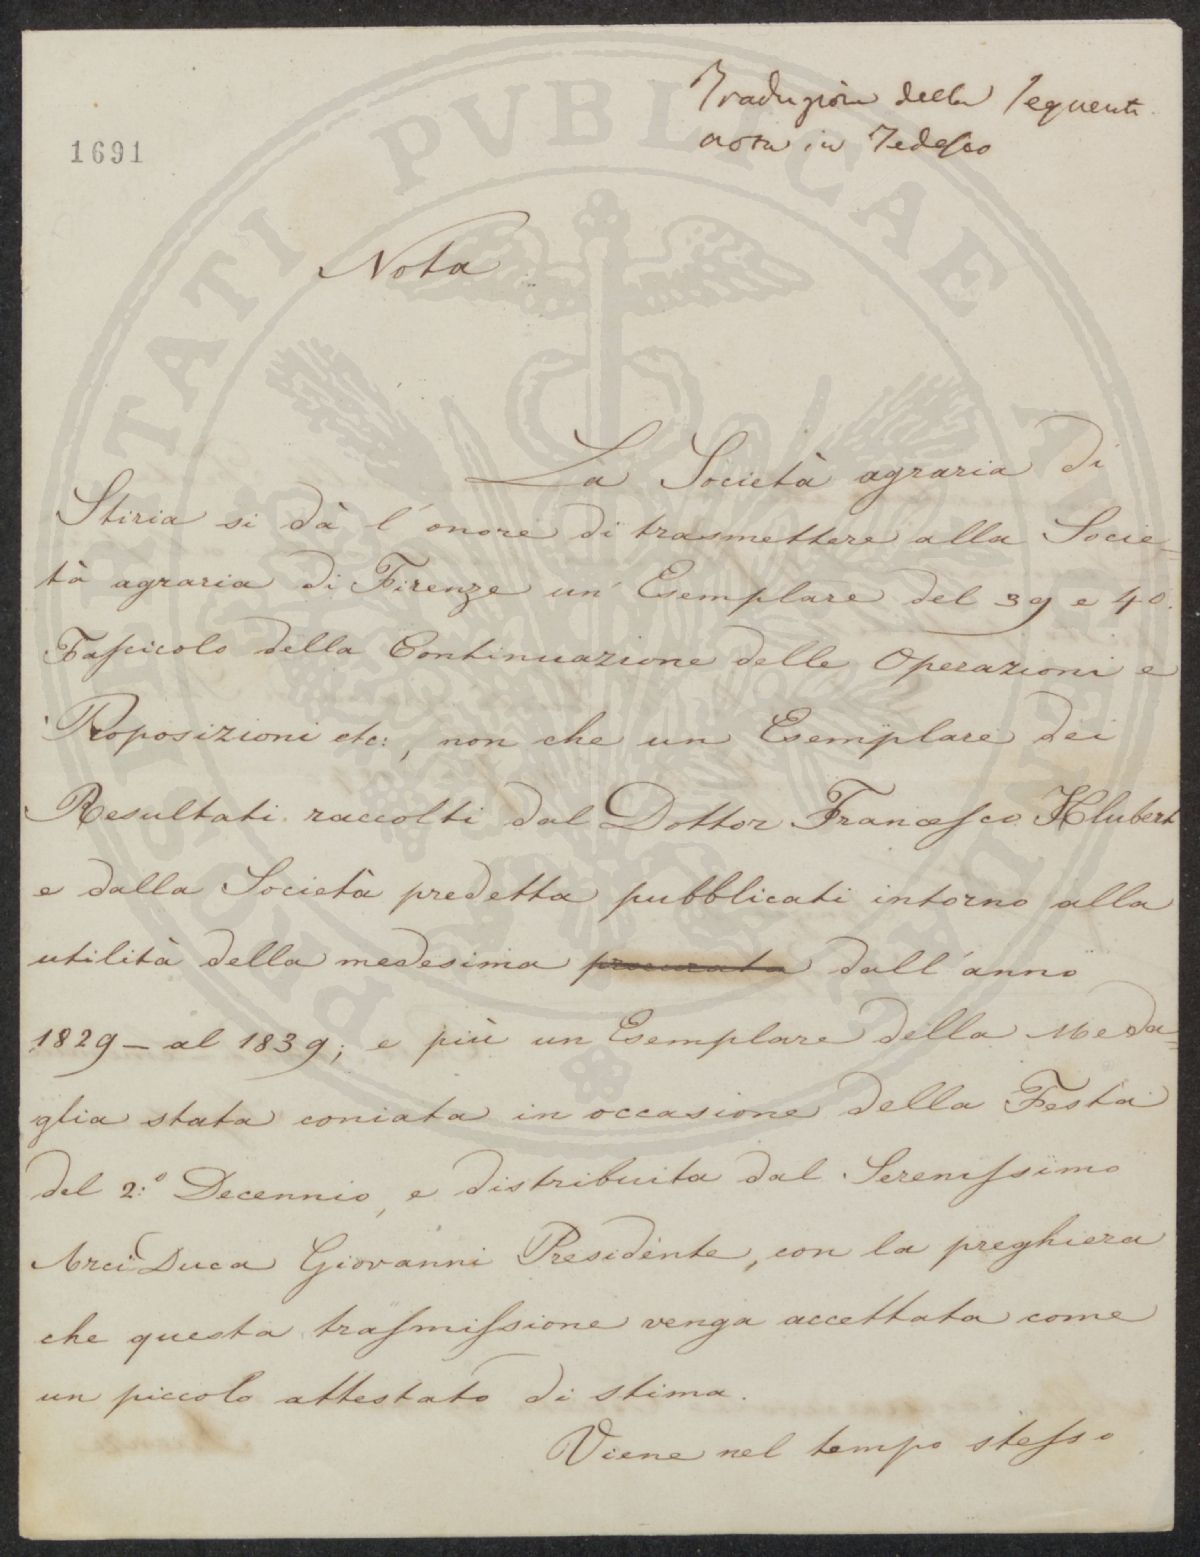 Traduzione della seguente
nota in Tedesco
1691
Nota
La Società agraria di
Stiria si dà l'onore di trasmettere alla Socie=
tà agraria di Firenze un' Esemplare del 39 e 40.
Fascicolo della Continuazione delle Operazioni e
Proposizioni etc:, non che un Esemplare dei
Resultati raccolti dal Dottor Francesco Hlubert
e dalla Società predetta pubblicati intorno alla
utilità della medesima procurata dall'anno
1829 – al 1839; e più un Esemplare della Meda=
glia stata coniata in occasione della Festa
del 2:º Decennio, e distribuita dal Serenissimo
Arci Duca Giovanni Presidente, con la preghiera
che questa trasmissione venga accettata come
un piccolo attestato di stima.
Viene nel tempo stesso
PROSPERITATI PVBLICAE AVGENDAE